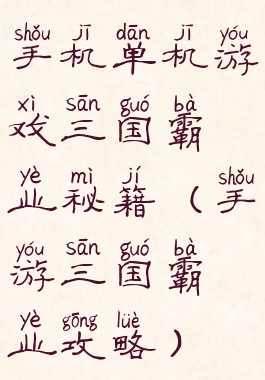 shǒu jī dān jī yóu
手机单机游
xì sān guó bà
戏三国霸
yè mì jí shǒu
业秘籍（手
yóu sān guó bà
游三国霸
yè gōng lüè
业攻略）